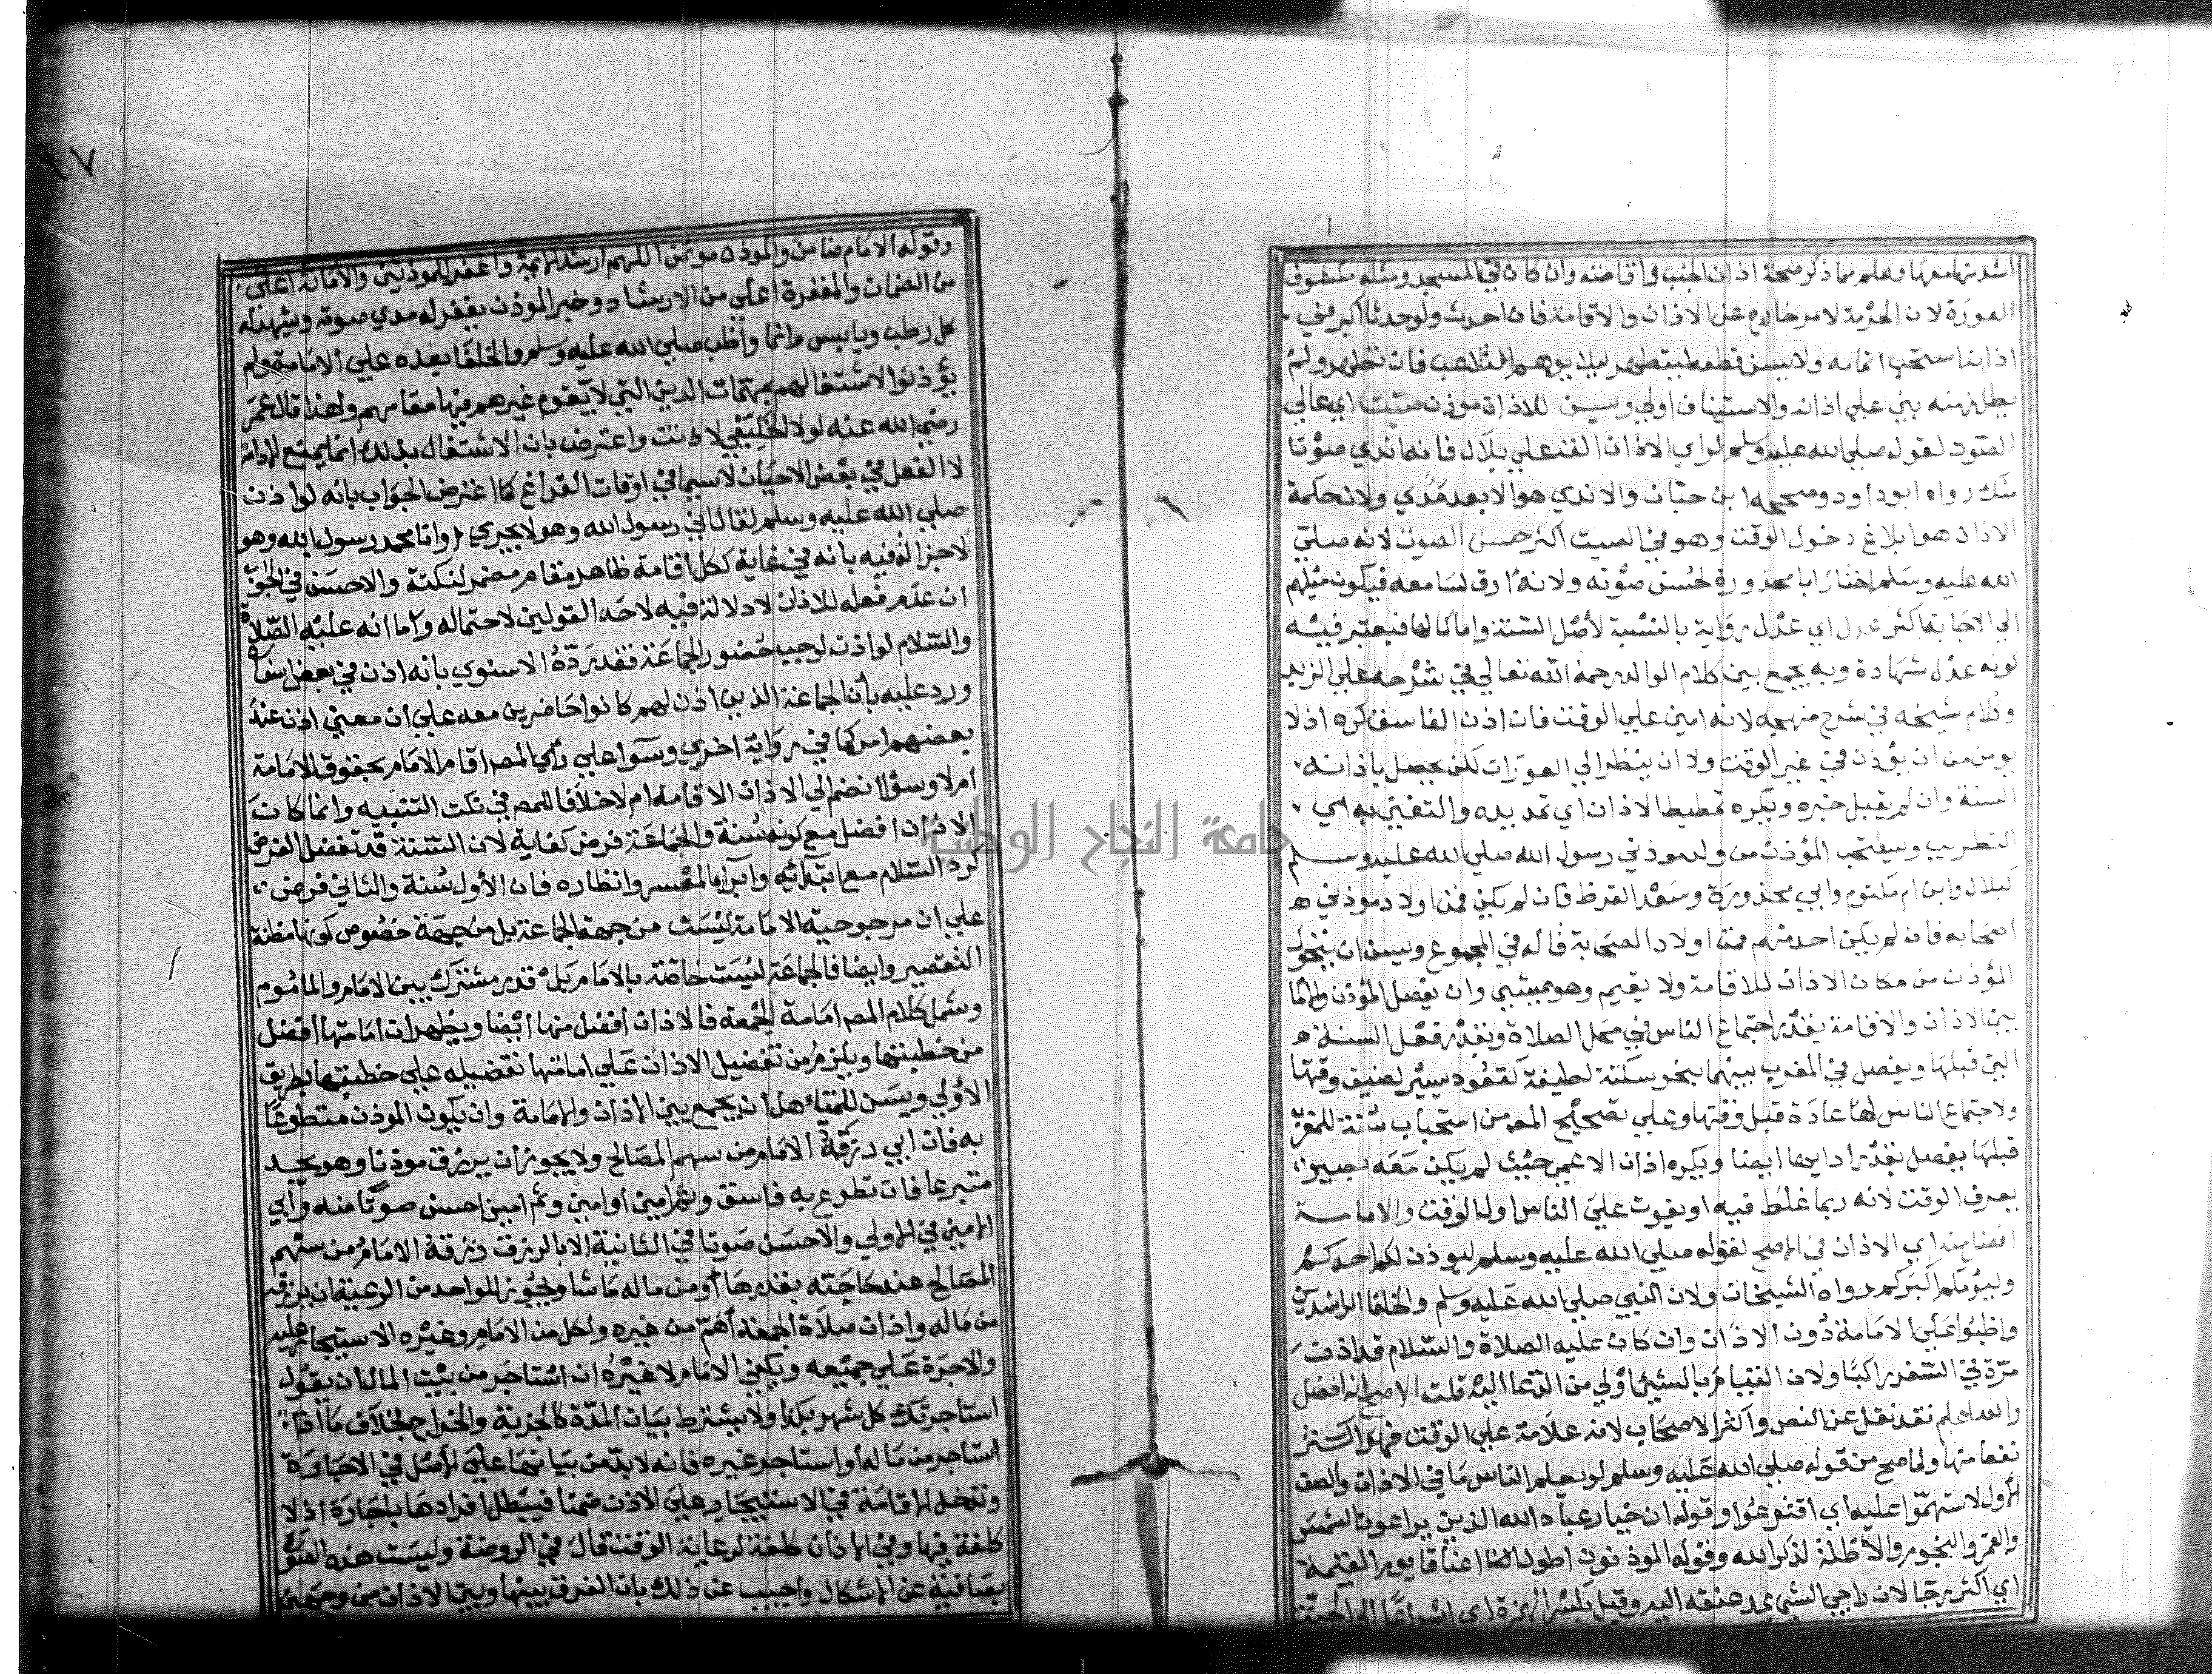 اشد منها معها وعلم مما ذكر صحة اذان الجنب واقامته وان كان في المسجد ومثله مكشوف
العورة لان الحرمة لامر خارج عن الاذان والاقامة فان احدث ولو حدثا اكبر في
اذانه استحب اتمامه ولا يسن قطعه ليتطهر ليلا يوهم التلاعب فان تطهر ولم
يطل زمنه بني علي اذانه والاستيناف اولي ويسن للاذان موذن صيت اي عالي
الصوت لقوله صلي الله عليه وسلم لراي الاذان القنه علي بلال فانه اندي صوتا
منك رواه ابو داود وصححه ابن حبان والاندي هو الابعد مدي ولان حكمة
الاذان هو ابلاغ دخول الوقت وهو في الصيت اكثر حسن الصوت لانه صلي
الله عليه وسلم اختار ابا محذورة لحسن صوته ولانه ارق لسامعه فيكون ميلهم
الي الاجابة اكثر عدل اي عدل رواية بالنسبة لاصل السنة واما كمالها فيعتبر فيه
كونه عدل شهادة وبه يجمع بين كلام الوالد رحمه الله تعالي في شرحه علي الزبد
وكلام شيخه في شرح منهجه لانه امين علي الوقت فان اذن الفاسق كره اذ لا
يومن من ان يؤذن في غير الوقت ولا ان ينظر الي العورات لكن يحصل باذانه
السنة وان لم يقبل خبره ويكره تمطيط الاذان اي تمديده والتغني به اي
التطريب ويستحب المؤذن من ولد موذني رسول الله صلي الله عليه وسلم
كبلال وابن ام مكتوم وابي محذورة وسعد القرظ فان لم يكن فمن اولاد موذني
اصحابه فان لم يكن احد منهم فمن اولاد الصحابة قاله في المجموع ويسن ان يتحول
المؤذن من مكان الاذان للاقامة ولا يقيم وهو يمشي وان يفصل المؤذن والامام
بين الاذان والاقامة بقدر اجتماع الناس في محل الصلاة وبقدر فعل السنة
التي قبلها ويفصل في المغرب بينهما بنحو سكتة لطيفة كقعود يسير لضيق وقتها
ولاجتماع الناس لها عادة قبل وقتها وعلي تصحيح المص من استحباب سنة للمغرب
قبلها يفصل بقدر ادايها ايضا ويكره اذان الاعمي حيث لم يكن معه بصير
يعرف الوقت لانه ربما غلط فيه او يفوت علي الناس اول الوقت والامامة
افضل منه اي الاذان في الاصح لقوله صلي الله عليه وسلم ليوذن لكم احدكم
وليؤمكم اكبركم رواه الشيخان ولان النبي صلي الله عليه وسلم والخلفا الراشدين
واظبوا علي الامامة دون الاذان وان كان عليه الصلاة والسلام قد اذن
مرة في السفر راكبا ولان القيام بالشيئ اولي من الدعا اليه قلت الاصح انه افضل
والله اعلم فقد نقل عن النص واكثر الاصحاب لانه علامة علي الوقت فهو اكثر
نفعا منها ولما صح من قوله صلي الله عليه وسلم لو يعلم الناس ما في الاذان والصف
الأول لاستهموا عليه اي اقترعوا وقوله ان خيار عباد الله الذين يراعون الشمس
والقمر والنجوم والأظلة لذكر الله وقوله الموذنون اطول الناس اعناقا يوم القيمة
اي اكثر رجا لان راجي الشيئ يمد عنقه اليه وقيل بكسر الهمزة اي اسراعا الي الجنة
وقوله الامام ضامن والموذن موتمن اللهم ارشد الايمة واغفر للموذنين والامانة اعلي
من الضمان والمغفرة اعلي من الارشاد وخبر الموذن يغفر له مدي صوته ويشهد له
كل رطب ويابس وانما واظب صلي الله عليه وسلم والخلفا بعده علي الامامة ولم
يؤذنوا لاشتغالهم بمهمات الدين التي لا يقوم غيرهم فيها مقامهم ولهذا قال عمر
رضي الله عنه لولا الخليفي لاذنت واعترض بان الاشتغال بذلك انما يمنع الادامة
لا الفعل في بعض الاحيان لا سيما في اوقات الفراغ كما اعترض الجواب بانه لو اذن
صلي الله عليه وسلم لقال اني رسول الله وهو لا يجزي او ان محمد رسول الله وهو
لا جزالة فيه بانه في غاية كل اقامة ظاهر مقام مضمر لنكتة والاحسن في الجواب
ان عدم فعله للاذان لا دلالة فيه لاحد القولين لاحتماله واما انه عليه الصلاة
والسلام لو اذن لوجب حضور الجماعة فقد رده الاسنوي بانه اذن في بعض اسفاره
ورد عليه بان الجماعة الذين اذن لهم كانوا حاضرين معه علي ان معني اذن عند
بعضهم امر كما في رواية اخري وسوا علي رأي المص اقام الامام بحقوق الامامة
ام لا وسوا انضم الي الاذان الاقامة ام لا خلافا للمص في نكت التنبيه وانما كان
الاذان افضل مع كونه سنة والجماعة فرض كفاية لان السنة قد تفضل الفرض
كرد السلام مع ابتدائه وابراء المعسر وانظاره فان الأول سنة والثاني فرض
علي ان مرجوحية الامامة ليست من جهة الجماعة بل من جهة خصوص كونها مظنة
التقصير وايضا فالجماعة ليست خاصة بالامام بل قدر مشترك بين الامام والماموم
وشمل كلام المص امامة الجمعة فالاذان افضل منها ايضا ويظهر ان امامتها افضل
من خطبتها ويلزم من تفضيل الاذان علي امامتها تفضيله علي خطبتها بطريق
الأولي ويسن للمتاهل ان يجمع بين الاذان والامامة وان يكون الموذن متطوعا
به فان ابي رزقه الامام من سهم المصالح ولا يجوز ان يرزق موذنا وهو يجد
متبرعا فان تطوع به فاسق وثم امين او امين وثم امين احسن صوتا منه وابي
الامين في الاولي والاحسن صوتا في الثانية الا بالرزق رزقه الامام من سهم
المصالح عند حاجته بقدرها او من ماله ما شا ويجوز للواحد من الرعية ان يرزقه
من ماله واذان صلاة الجمعة أهم من غيره ولكل من الامام وغيره الاستيجار عليه
والاجرة علي جميعه ويكفي الامام لا غيره ان استاجر من بيت المال ان يقول
استاجرتك كل شهر بكذا ولا يشترط بيان المدة كالجزية والخراج بخلاف ما اذا
استاجر من ماله أو استاجر غيره فانه لا بد من بيانها علي الاصل في الاجارة
وتدخل الاقامة في الاستيجار علي الاذن ضمنا فيبطل افرادها باجارة اذ لا
كلفة فيها وفي الاذان كلفة لرعاية الوقت قال في الروضة وليست هذه الصورة
بصافية عن الاشكال واجيب عن ذلك بان الفرق بينها وبين الاذان من وجهين
جامعة النجاح الوطنية